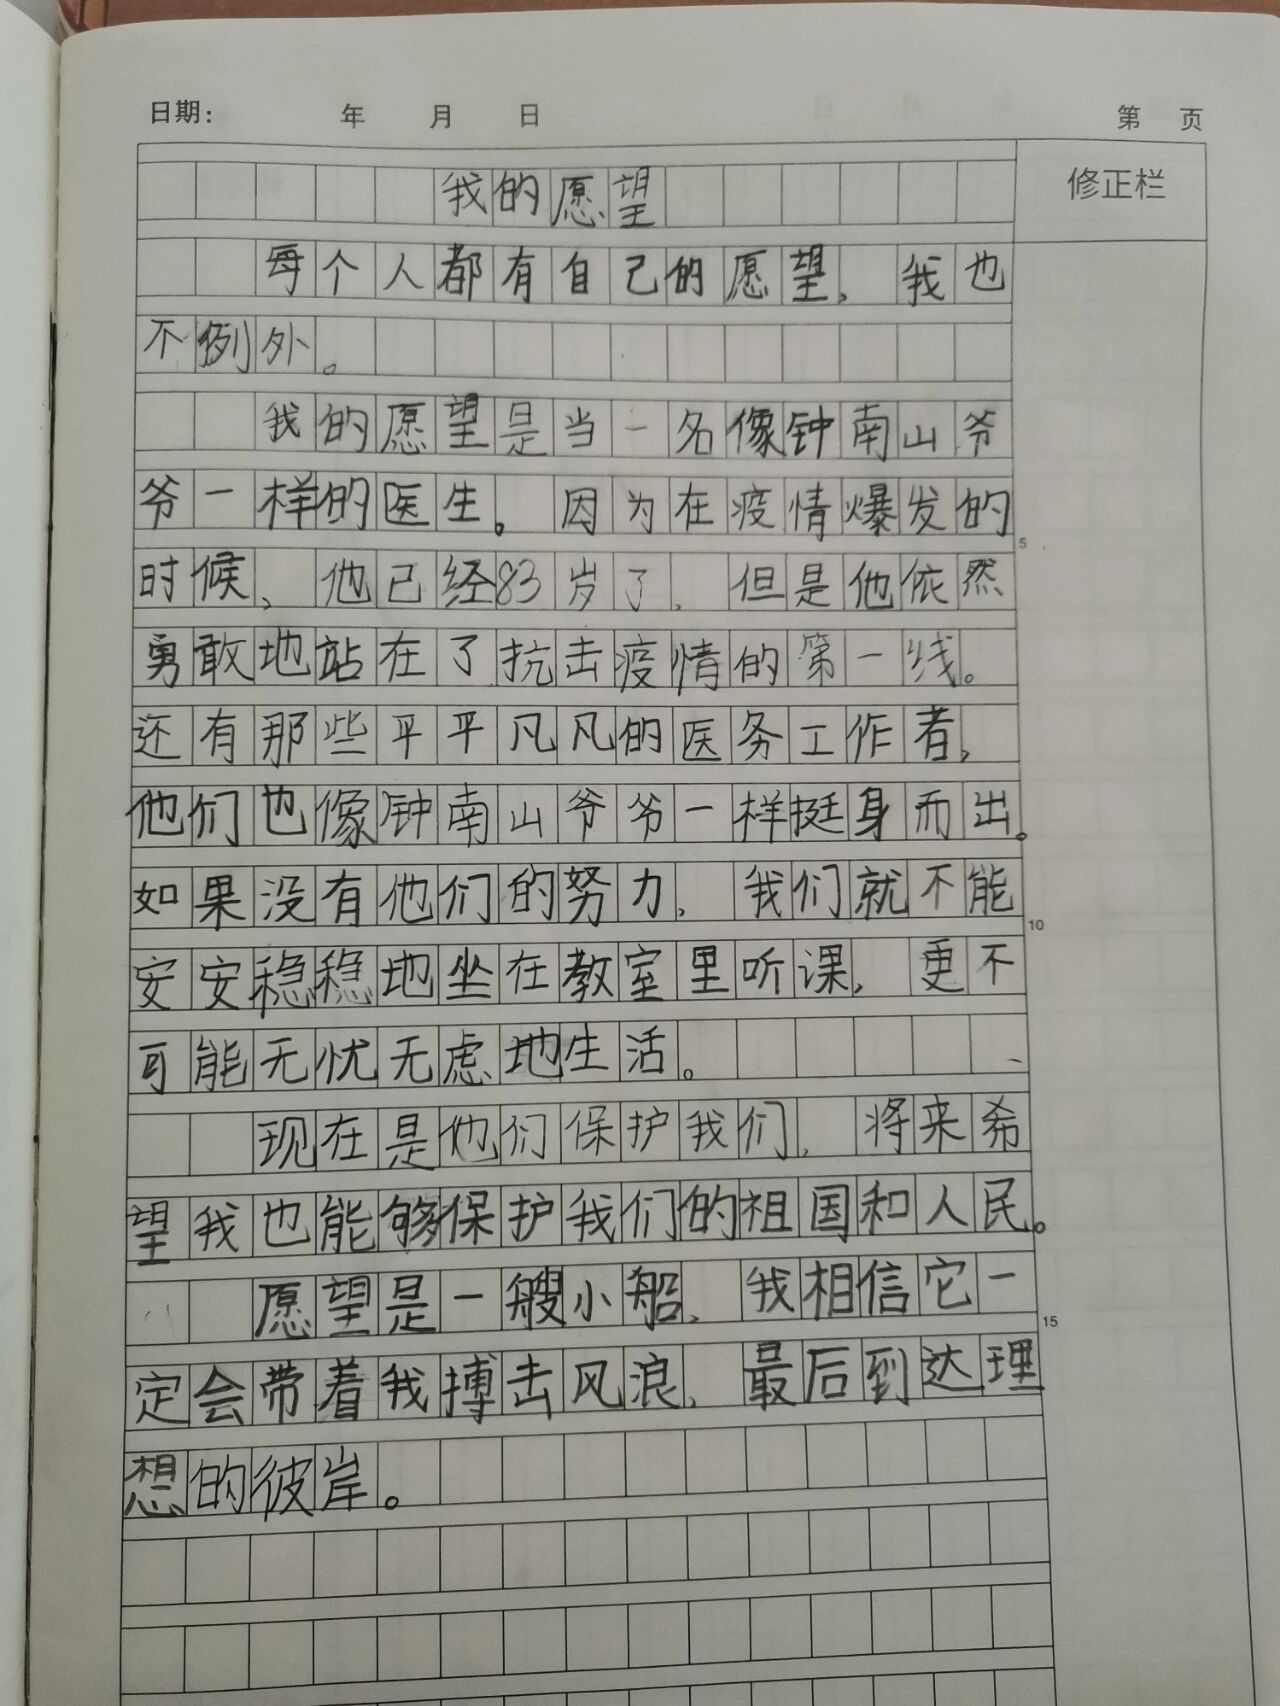 日期: 年 月 日 第 页
修正栏
我的愿望
每个人都有自己的愿望，我也
不例外。
我的愿望是当一名像钟南山爷
爷一样的医生。因为在疫情爆发的
时候，他已经83岁了，但是他依然
5
勇敢地站在了抗击疫情的第一线。
还有那些平平凡凡的医务工作者，
他们也像钟南山爷爷一样挺身而出。
如果没有他们的努力，我们就不能
10
安安稳稳地坐在教室里听课，更不
可能无忧无虑地生活。
现在是他们保护我们，将来希
望我也能够保护我们的祖国和人民。
愿望是一艘小船，我相信它一
15
定会带着我搏击风浪，最后到达理
想的彼岸。